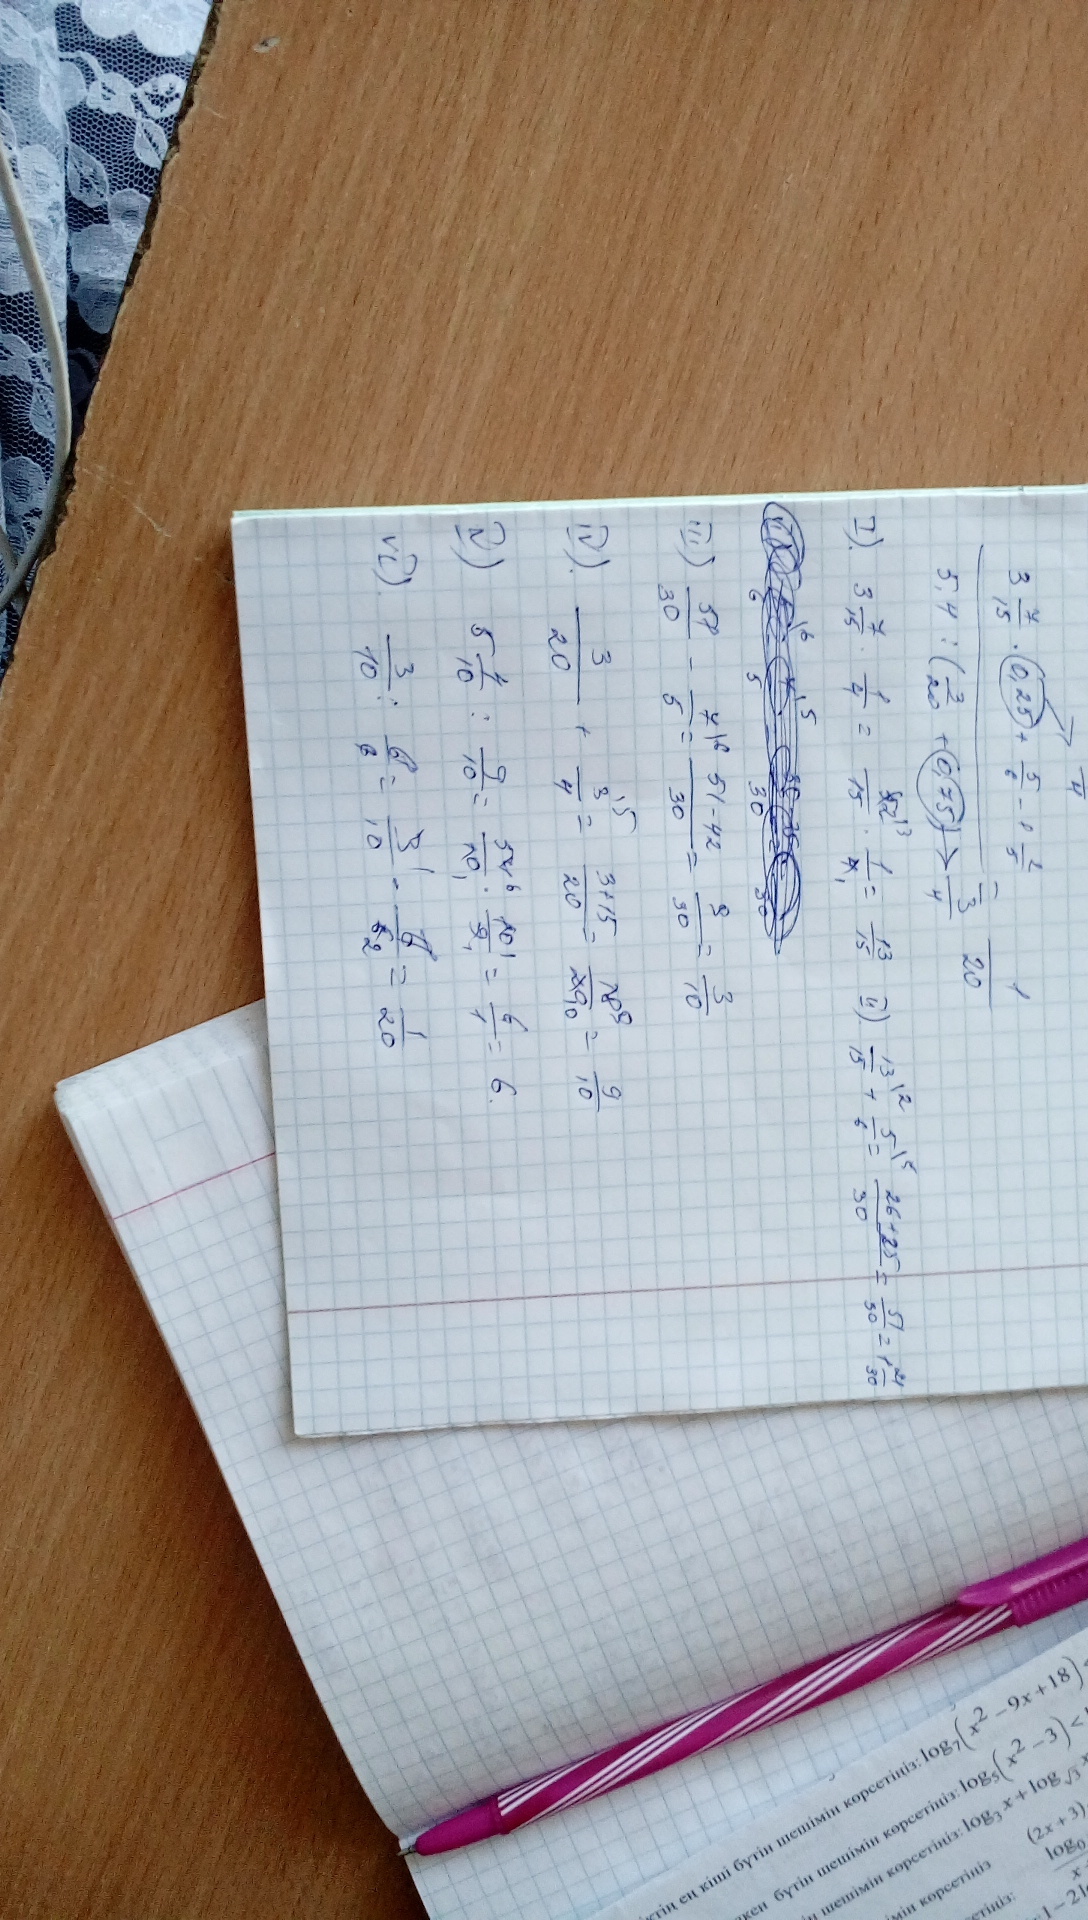 1/4
3 7/15 · 0,25 + 5/6 - 1 2/5
5,4 : (3/20 + 0,75) → 3/4 = 1/20
I). 3 7/15 · 1/4 = 52/15 · 1/4 = 13/15 II). 13/15 + 5/6 = 26+25/30 = 51/30 = 1 21/30
III) 51/30 - 7/5 = 51-42/30 = 9/30 = 3/10
IV). 3/20 + 3/4 = 3+15/20 = 18/20 = 9/10
V) 5 4/10 : 9/10 = 54/10 · 10/9 = 6/1 = 6.
VI). 3/10 : 6 = 3/10 · 1/6 = 1/20
ең кіші бүтін шешімін көрсетіңіз: log₇(x² - 9x + 18) <
бүтін шешімін көрсетіңіз: log₅(x² - 3) <
шешімін көрсетіңіз: log₃ x + log√₃ x
көрсетіңіз (2x + 3)
1 - 2